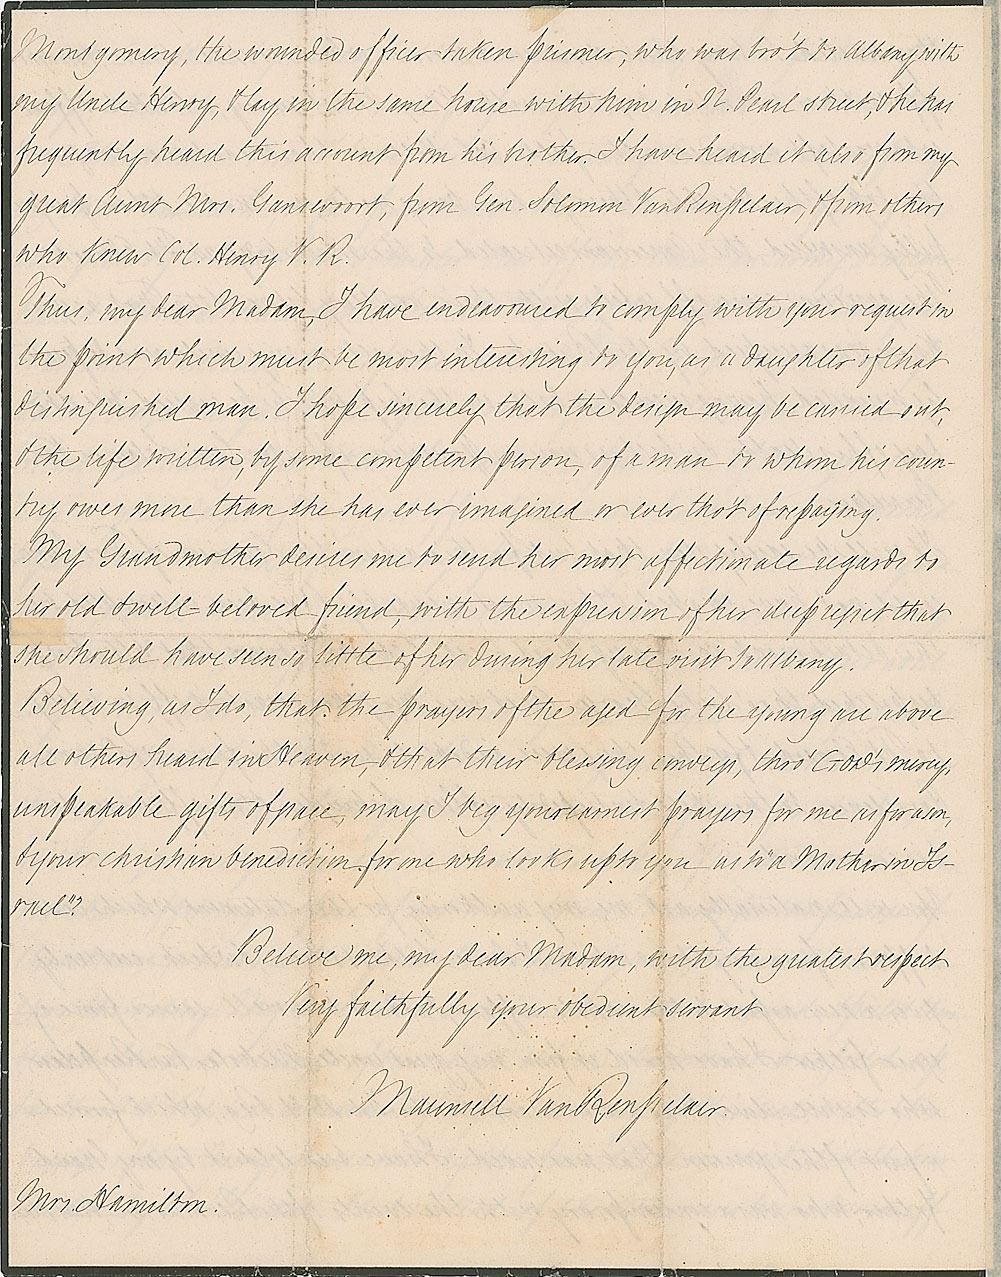 Montgomery, the wounded officer taken prisoner, who was bro't to Albany with
my Uncle Henry, & lay in the same house with him in N. Pearl street, & he has
frequently heard this account from his brother. I have heard it also from my
great Aunt Mrs. Gansevoort, from Gen. Solomon Van Rensselaer, & from others
who knew Col. Henry V. R.
Thus, my dear Madam, I have endeavoured to comply with your request in
the point which must be most interesting to you, as a daughter of that
distinguished man. I hope sincerely that the design may be carried out,
& the life written, by some competent person, of a man to whom his coun-
try owes more than she has ever imagined or ever thot of repaying.
My Grandmother desires me to send her most affectionate regards to
her old & well-beloved friend, with the expression of her deep regret that
she should have seen so little of her during her late visit to Albany.
Believing, as I do, that the prayers of the aged for the young are above
all others heard in Heaven, & that their blessing conveys, thro' God's mercy,
unspeakable gifts of grace, may I beg your earnest prayers for me as for a son,
& your christian benediction for one who looks up to you as to "a Mother in Is-
rael"?
Believe me, my dear Madam, with the greatest respect
Very faithfully your obedient servant
Maunsell Van Rensselaer.
Mrs. Hamilton.